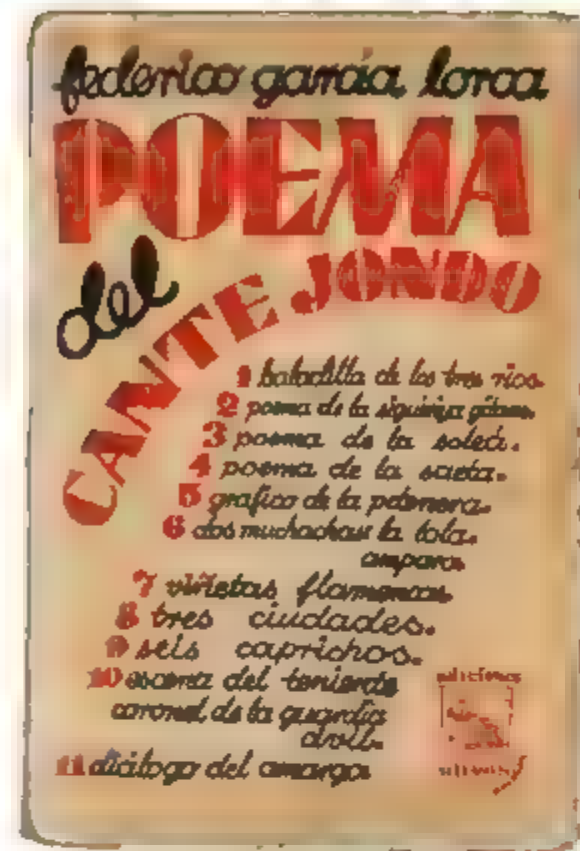 federico garcía lorca
POEMA
del
CANTE JONDO
1 baladilla de los tres ríos.
2 poema de la siguiriya gitana.
3 poema de la soleá.
4 poema de la saeta.
5 gráfico de la petenera.
6 dos muchachas: la lola.
amparo.
7 viñetas flamencas.
8 tres ciudades.
9 seis caprichos.
10 escena del teniente
coronel de la guardia
civil.
11 diálogo del amargo
ediciones